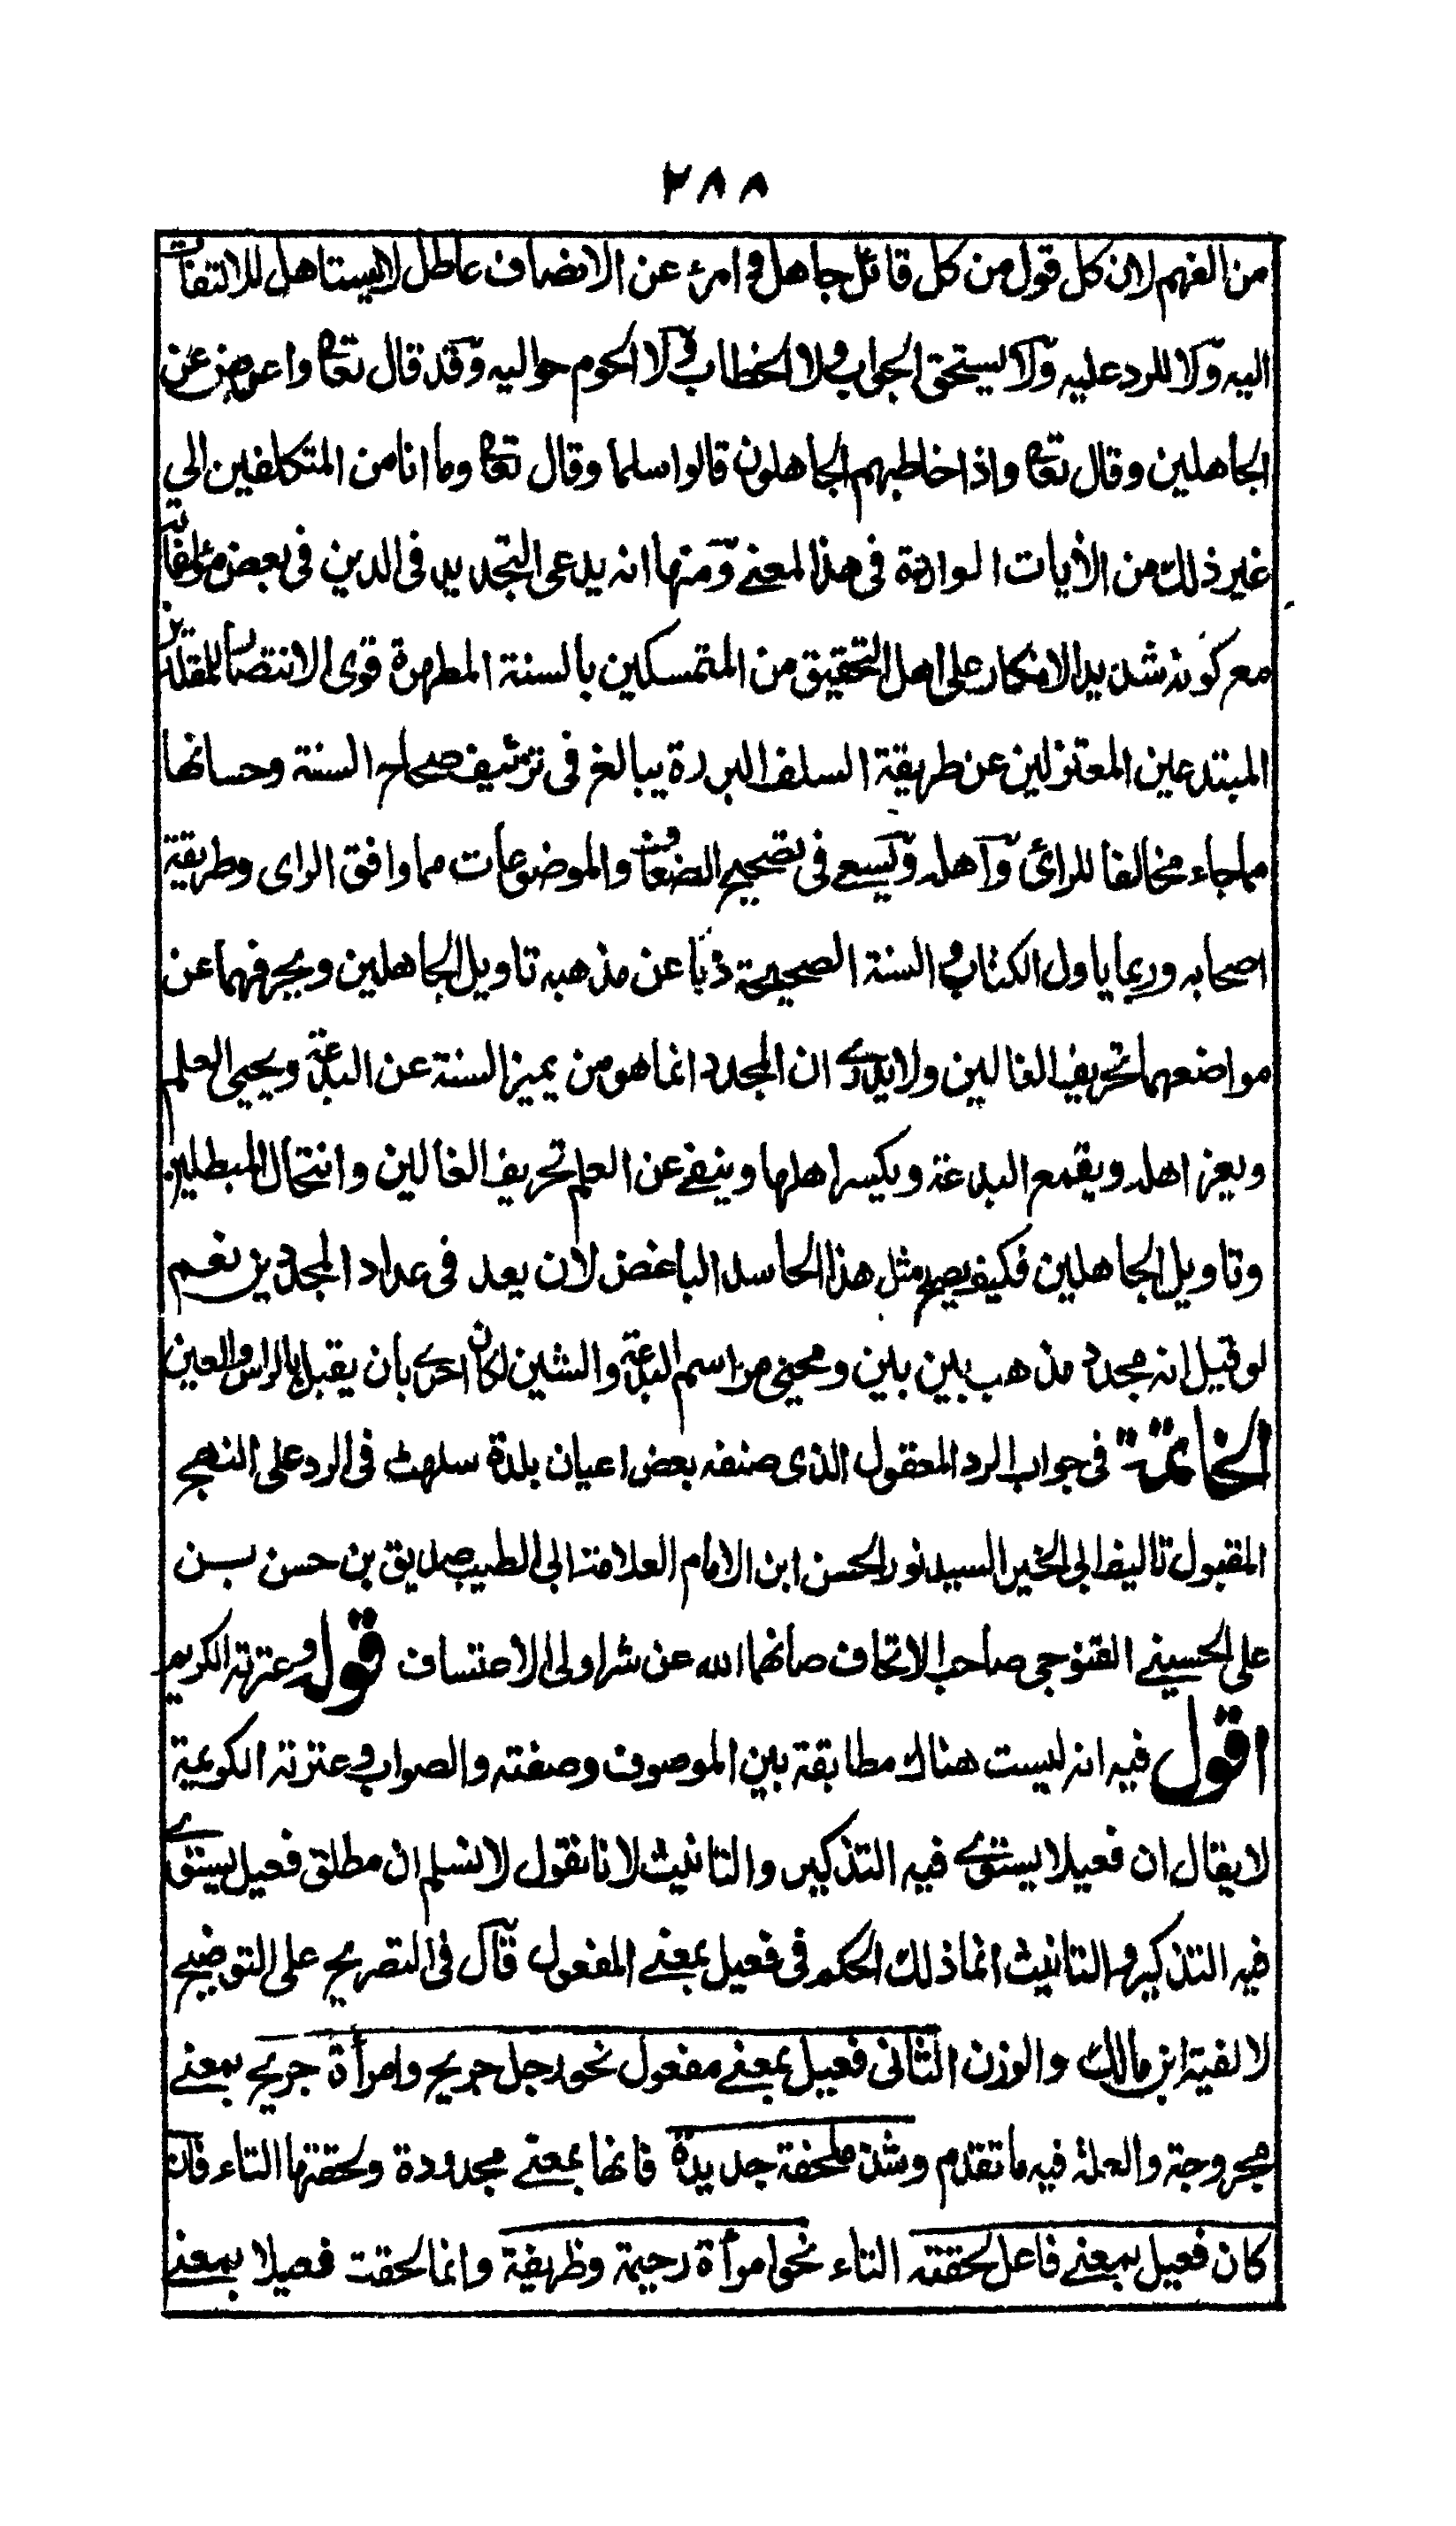 ٢٨٨
من الفهم لان كل قول من كل قائل جاهل و امرء عن الانصاف عاطل لا يستاهل للالتفات
اليه ولا للرد عليه ولا يستحق الجواب ولا الخطاب ولا الحوم حواليه وقد قال تعا واعرض عن
الجاهلين وقال تعا واذا خاطبهم الجاهلون قالوا سلما وقال تعا وما انا من المتكلفين الى
غير ذلك من الأيات الواردة في هذا المعنے ومنها انه يدعى التجديد في الدين في بعض مؤلفاته
مع كونه شديد الانكار على اهل التحقيق من المتمسكين بالسنة المطهرة قوى الانتصار للمقلدين
المبتدعين المعتزلين عن طريقة السلف البررة يبالغ في تزئيف صحاح السنة وحسانها
مما جاء مخالفا للرائ وأهله ويسعے في تصحيح الضعاف والموضوعات مما وافق الراى وطريقة
اصحابه وربما ياول الكتاب والسنة الصحيحة ذبا عن مذهبه تاويل الجاهلين ويحرفهما عن
مواضعهما تحريف الغالين ولا يدرے ان المجدد انما هو من يميز السنة عن البدعة ويحيى العلم
ويعز اهله ويقمع البدعة ويكسر اهلها وينفے عن العلم تحريف الغالين وانتحال المبطلين
وتاويل الجاهلين فكيف يصح مثل هذا الحاسد الباغض لان يعد في عداد المجددين نعم
لو قيل انه مجدد مذهب بين بين ومحيي مراسم البدعة والشين لكان احرے بان يقبل بالراس والعين
الخاتمة في جواب الرد المعقول الذى صنفه بعض اعيان بلدة سلهٹ في الرد على النهج
المقبول تاليف ابى الخير السيد نور الحسن ابن الامام العلامة ابى الطيب صديق بن حسن بن
على الحسينے القنوجى صاحب الاتحاف صانهما الله عن شر اولى الاعتساف قول وعترته الكريم
اقول فيه انه ليست هناك مطابقة بين الموصوف وصفته والصواب وعترته الكريمة
لا يقال ان فعيلا يستوے فيه التذكير والتانيث لانا نقول لا نسلم ان مطلق فعيل يستوے
فيه التذكير والتانيث انما ذلك الحكم في فعيل بمعنے المفعول قال في التصريح على التوضيح
لالفية ابن مالك والوزن الثانى فعيل بمعنے مفعول نحو رجل جريح وامرأة جريح بمعنے
مجروحة والعلة فيه ما تقدم وشذ ملحفة جديدة فانها بمعنے مجدودة ولحقتها التاء فان
كان فعيل بمعنے فاعل لحقته التاء نحو امرأة رحيمة وظريفة وانما لحقت فعيلا بمعنے